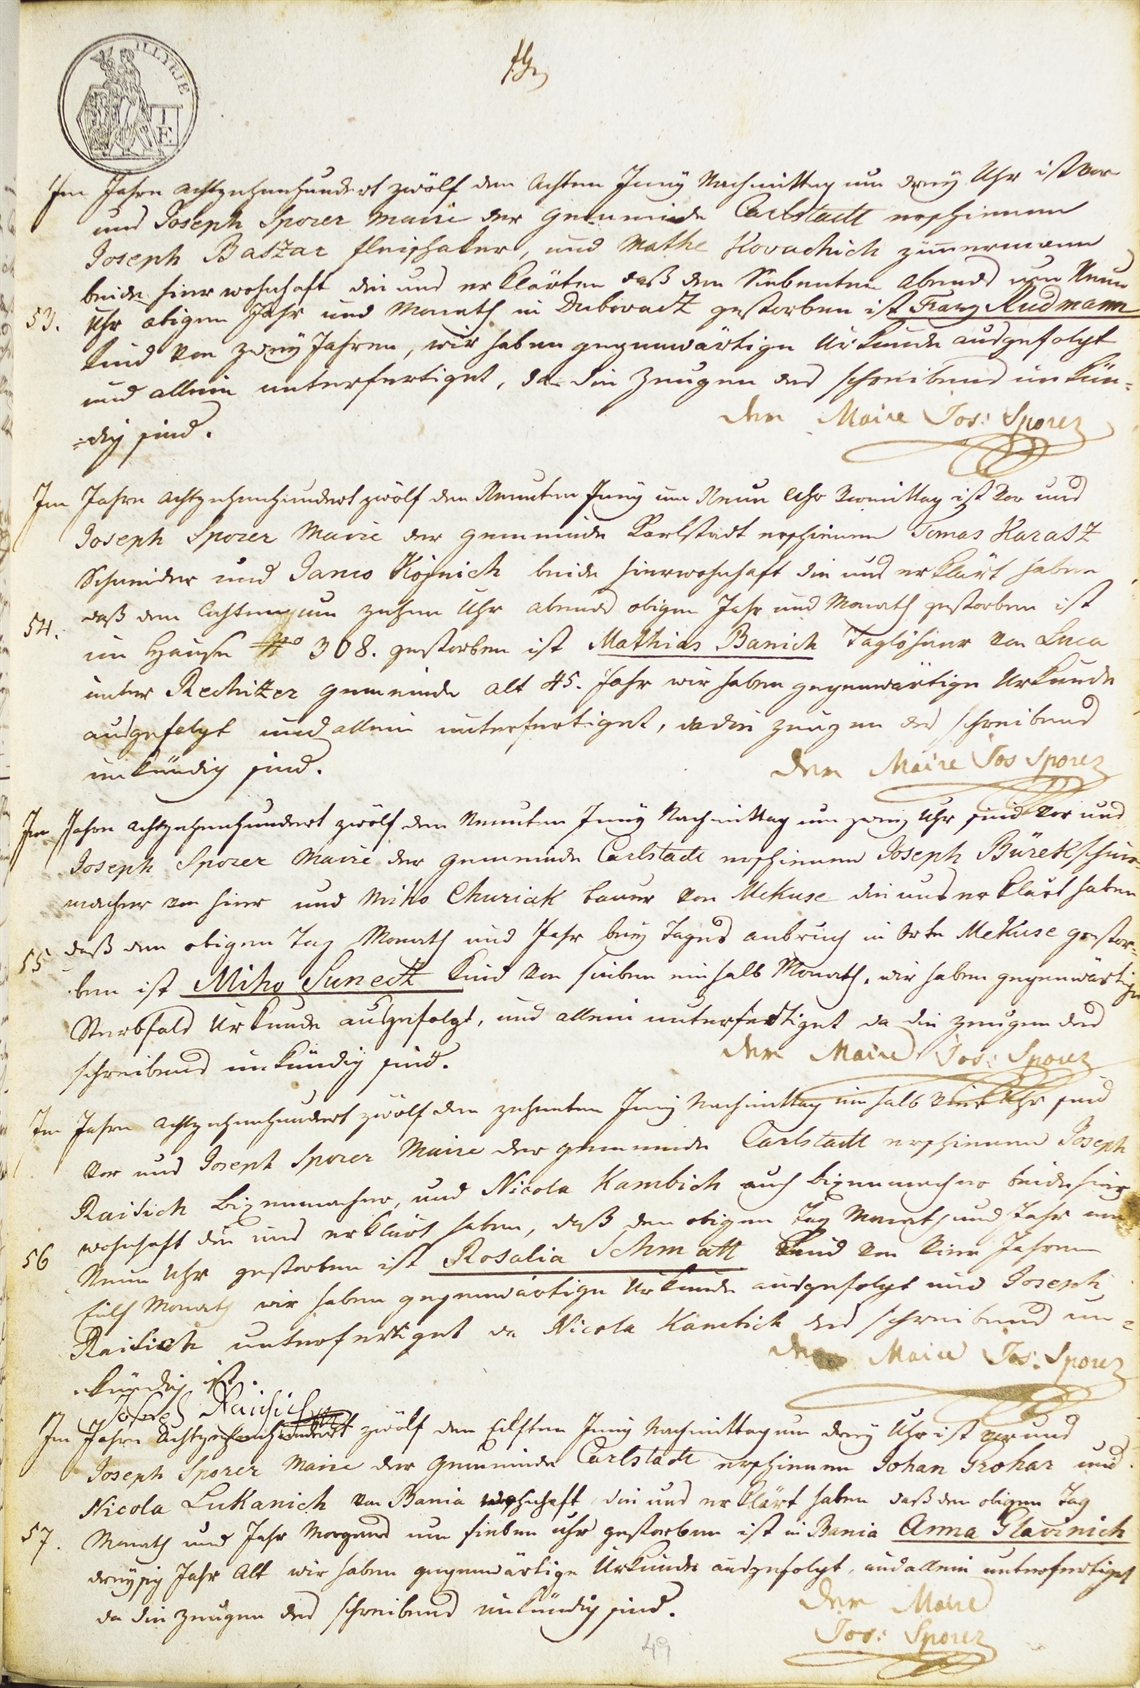 ILLYRIE
Im Jahre achtzehenhundert zwölf den achten Juny Nachmittag um drey Uhr ist vor
uns Joseph Sporer Maire der Gemeinde Carlstadt erschienen
Joseph Baszar fleischaker, und Mathe Kovachich zimmermann
beide hier wohnhaft die uns erklärten daß den Siebenten abends um Neun
53. Uhr obigen Jahr und Monath in Dubovacz gestorben ist Franz Rudmann
Kind von zwey Jahren, wir haben gegenwärtige Urkunde ausgefolgt
und allein unterfertiget, da die Zeugen des schreibens unkün-
-dig sind.
Der Maire Jos: Sporer
Im Jahre achtzehenhundert zwölf den Neunten Juny um Neun Uhr Vormittag ist vor uns
Joseph Sporer Maire der Gemeinde Karlstadt erschienen Tomas Harasz
Schneider und Janco Koinich beide hierwohnhaft die uns erklärt haben
54. daß den um zehen Uhr abends obigen Jahr und Monath gestorben ist
im Hause No 308. gestorben ist Mathias Banich Taglöhner von Luca
unter Rechitzer Gemeinde alt 45. Jahr wir haben gegenwärtige Urkunde
ausgefolgt und allein unterfertiget, da die Zeugen des schreibens
unkündig sind.
Der Maire Jos Sporer
Im Jahre achtzehenhundert zwölf den Neunten Juny Nachmittag um zwey Uhr sind vor uns
Joseph Sporer Maire der Gemeinde Carlstadt erschienen Joseph Bürek Schuh-
macher von hier und Miho Churiak bauer von Mekuse die uns erklärt haben
55 daß den obigen Tag Monath und Jahr bey Tages anbruch in Orte Mekuse gestor-
ben ist Miho Sunecz Kind von sieben einhalb Monath, wir haben gegenwärtige
Sterbfals Urkunde ausgefolgt, und allein unterfertiget da die Zeugen des
schreibens unkündig sind.
Der Maire Jos: Sporer
Im Jahre achtzehenhundert zwölf den zehenten Juny Nachmittag um halb vier Uhr sind
vor uns Joseph Sporer Maire der Gemeinde Carlstadt erschienen Joseph
Raisich und Nicola Kambich auch beide hier
56 wohnhaft die uns erklärt haben, daß den obigen Tag Monat, und Jahr um
Neun Uhr gestorben ist Rosalia Schmatt Kind von vier Jahren
Eilf Monath wir haben gegenwärtige Urkunde ausgefolgt und Joseph
Raisich unterfertiget da Nicola Kambich des schreibens un-
kündig ist.
Der Maire Jos: Sporer
Josef Raisich
Im Jahre achtzehenhundert zwölf den Eilften Juny Nachmittag um drey Uhr ist vor uns
Joseph Sporer Maire der Gemeinde Carlstadt erschienen Johan Grohar und
Nicola Lukanich von Bania wohnhaft die uns erklärt haben daß den obigen Tag
57. Monath und Jahr Morgens um sieben uhr gestorben ist in Bania Anna Glavinich
dreysig Jahr Alt wir haben gegenwärtige Urkunde ausgefolgt, und allein unterfertiget
da die Zeugen des schreibens unkündig sind.
Der Maire
Jos: Sporer
49